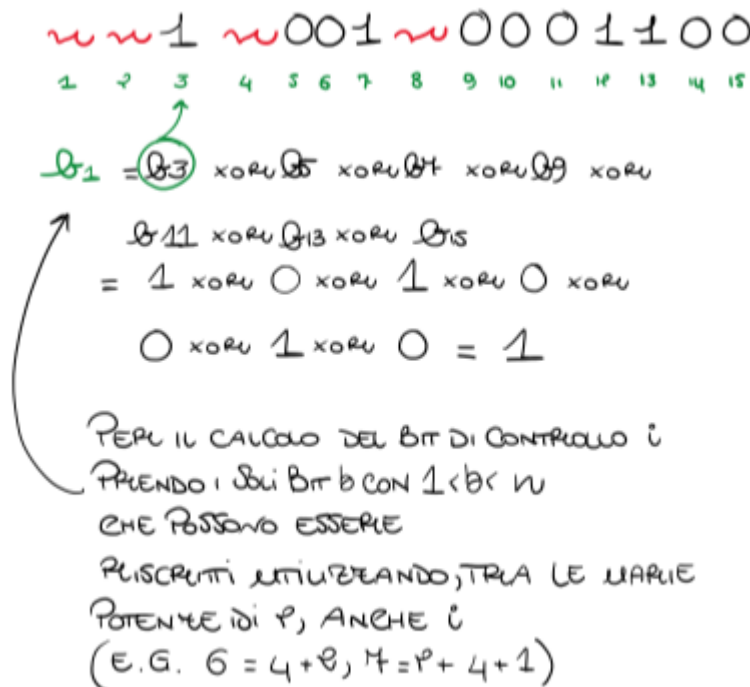 ~ ~ 1 ~ 0 0 1 ~ 0 0 0 1 1 0 0
1 2 3 4 5 6 7 8 9 10 11 12 13 14 15
b1 = b3 XOR b5 XOR b7 XOR b9 XOR
b11 XOR b13 XOR b15
= 1 XOR 0 XOR 1 XOR 0 XOR
0 XOR 1 XOR 0 = 1
PER IL CALCOLO DEL BIT DI CONTROLLO i
PRENDO I SOLI BIT b CON 1<b<n
CHE POSSONO ESSERE
RISCRITTI UTILIZZANDO, TRA LE VARIE
POTENZE DI 2, ANCHE i
(E.G. 6 = 4+2, 7 = 2+4+1)